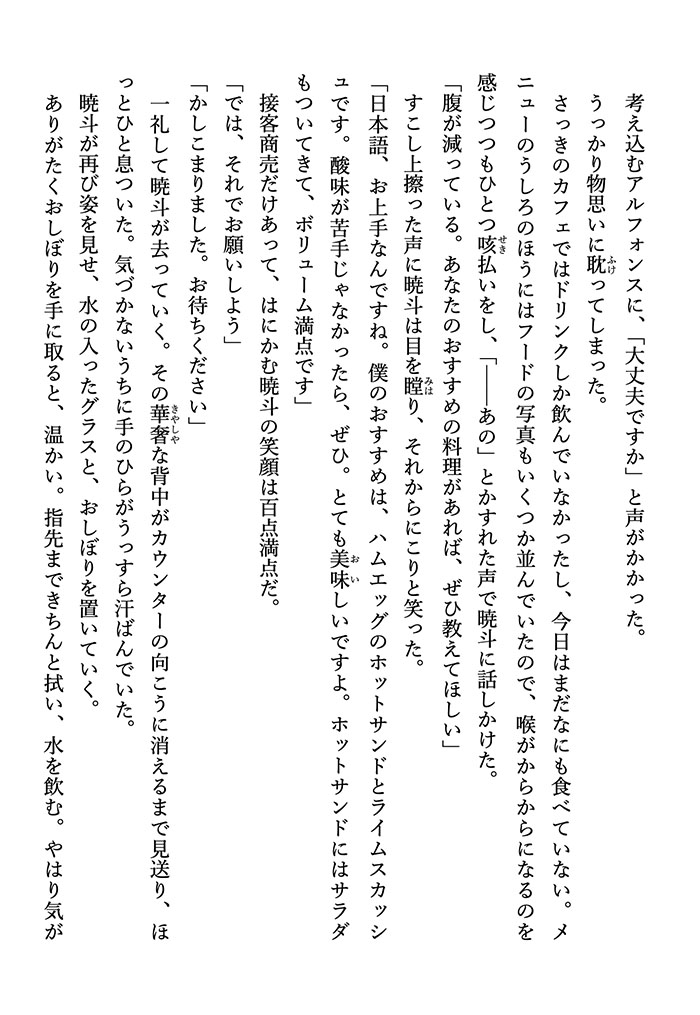 考え込むアルフォンスに、「大丈夫ですか」と声がかかった。
うっかり物思いに耽ってしまった。
さっきのカフェではドリンクしか飲んでいなかったし、今日はまだなにも食べていない。メ
ニューのうしろのほうにはフードの写真もいくつか並んでいたので、喉がからからになるのを
感じつつもひとつ咳払いをし、「――あの」とかすれた声で暁斗に話しかけた。
「腹が減っている。あなたのおすすめの料理があれば、ぜひ教えてほしい」
すこし上擦った声に暁斗は目を瞠り、それからにこりと笑った。
「日本語、お上手なんですね。僕のおすすめは、ハムエッグのホットサンドとライムスカッシ
ュです。酸味が苦手じゃなかったら、ぜひ。とても美味しいですよ。ホットサンドにはサラダ
もついてきて、ボリューム満点です」
接客商売だけあって、はにかむ暁斗の笑顔は百点満点だ。
「では、それでお願いしよう」
「かしこまりました。お待ちください」
一礼して暁斗が去っていく。その華奢な背中がカウンターの向こうに消えるまで見送り、ほ
っとひと息ついた。気づかないうちに手のひらがうっすら汗ばんでいた。
暁斗が再び姿を見せ、水の入ったグラスと、おしぼりを置いていく。
ありがたくおしぼりを手に取ると、温かい。指先まできちんと拭い、水を飲む。やはり気が